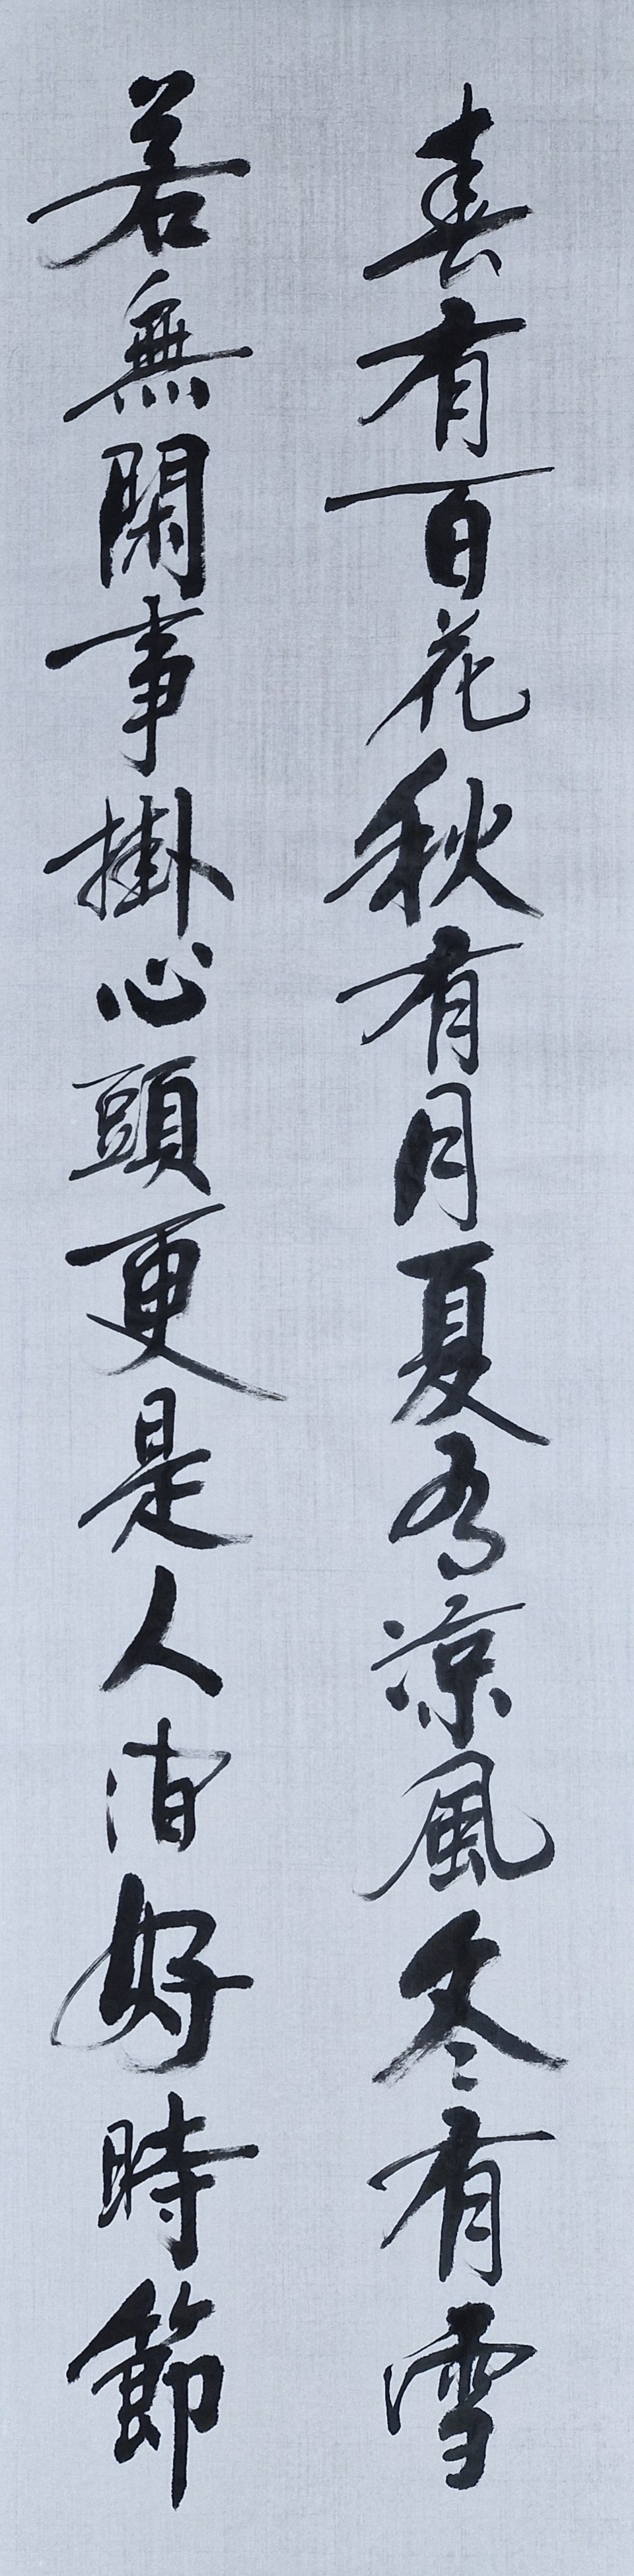 春有百花秋有月夏有凉風冬有雪
若無閑事掛心頭更是人间好時節